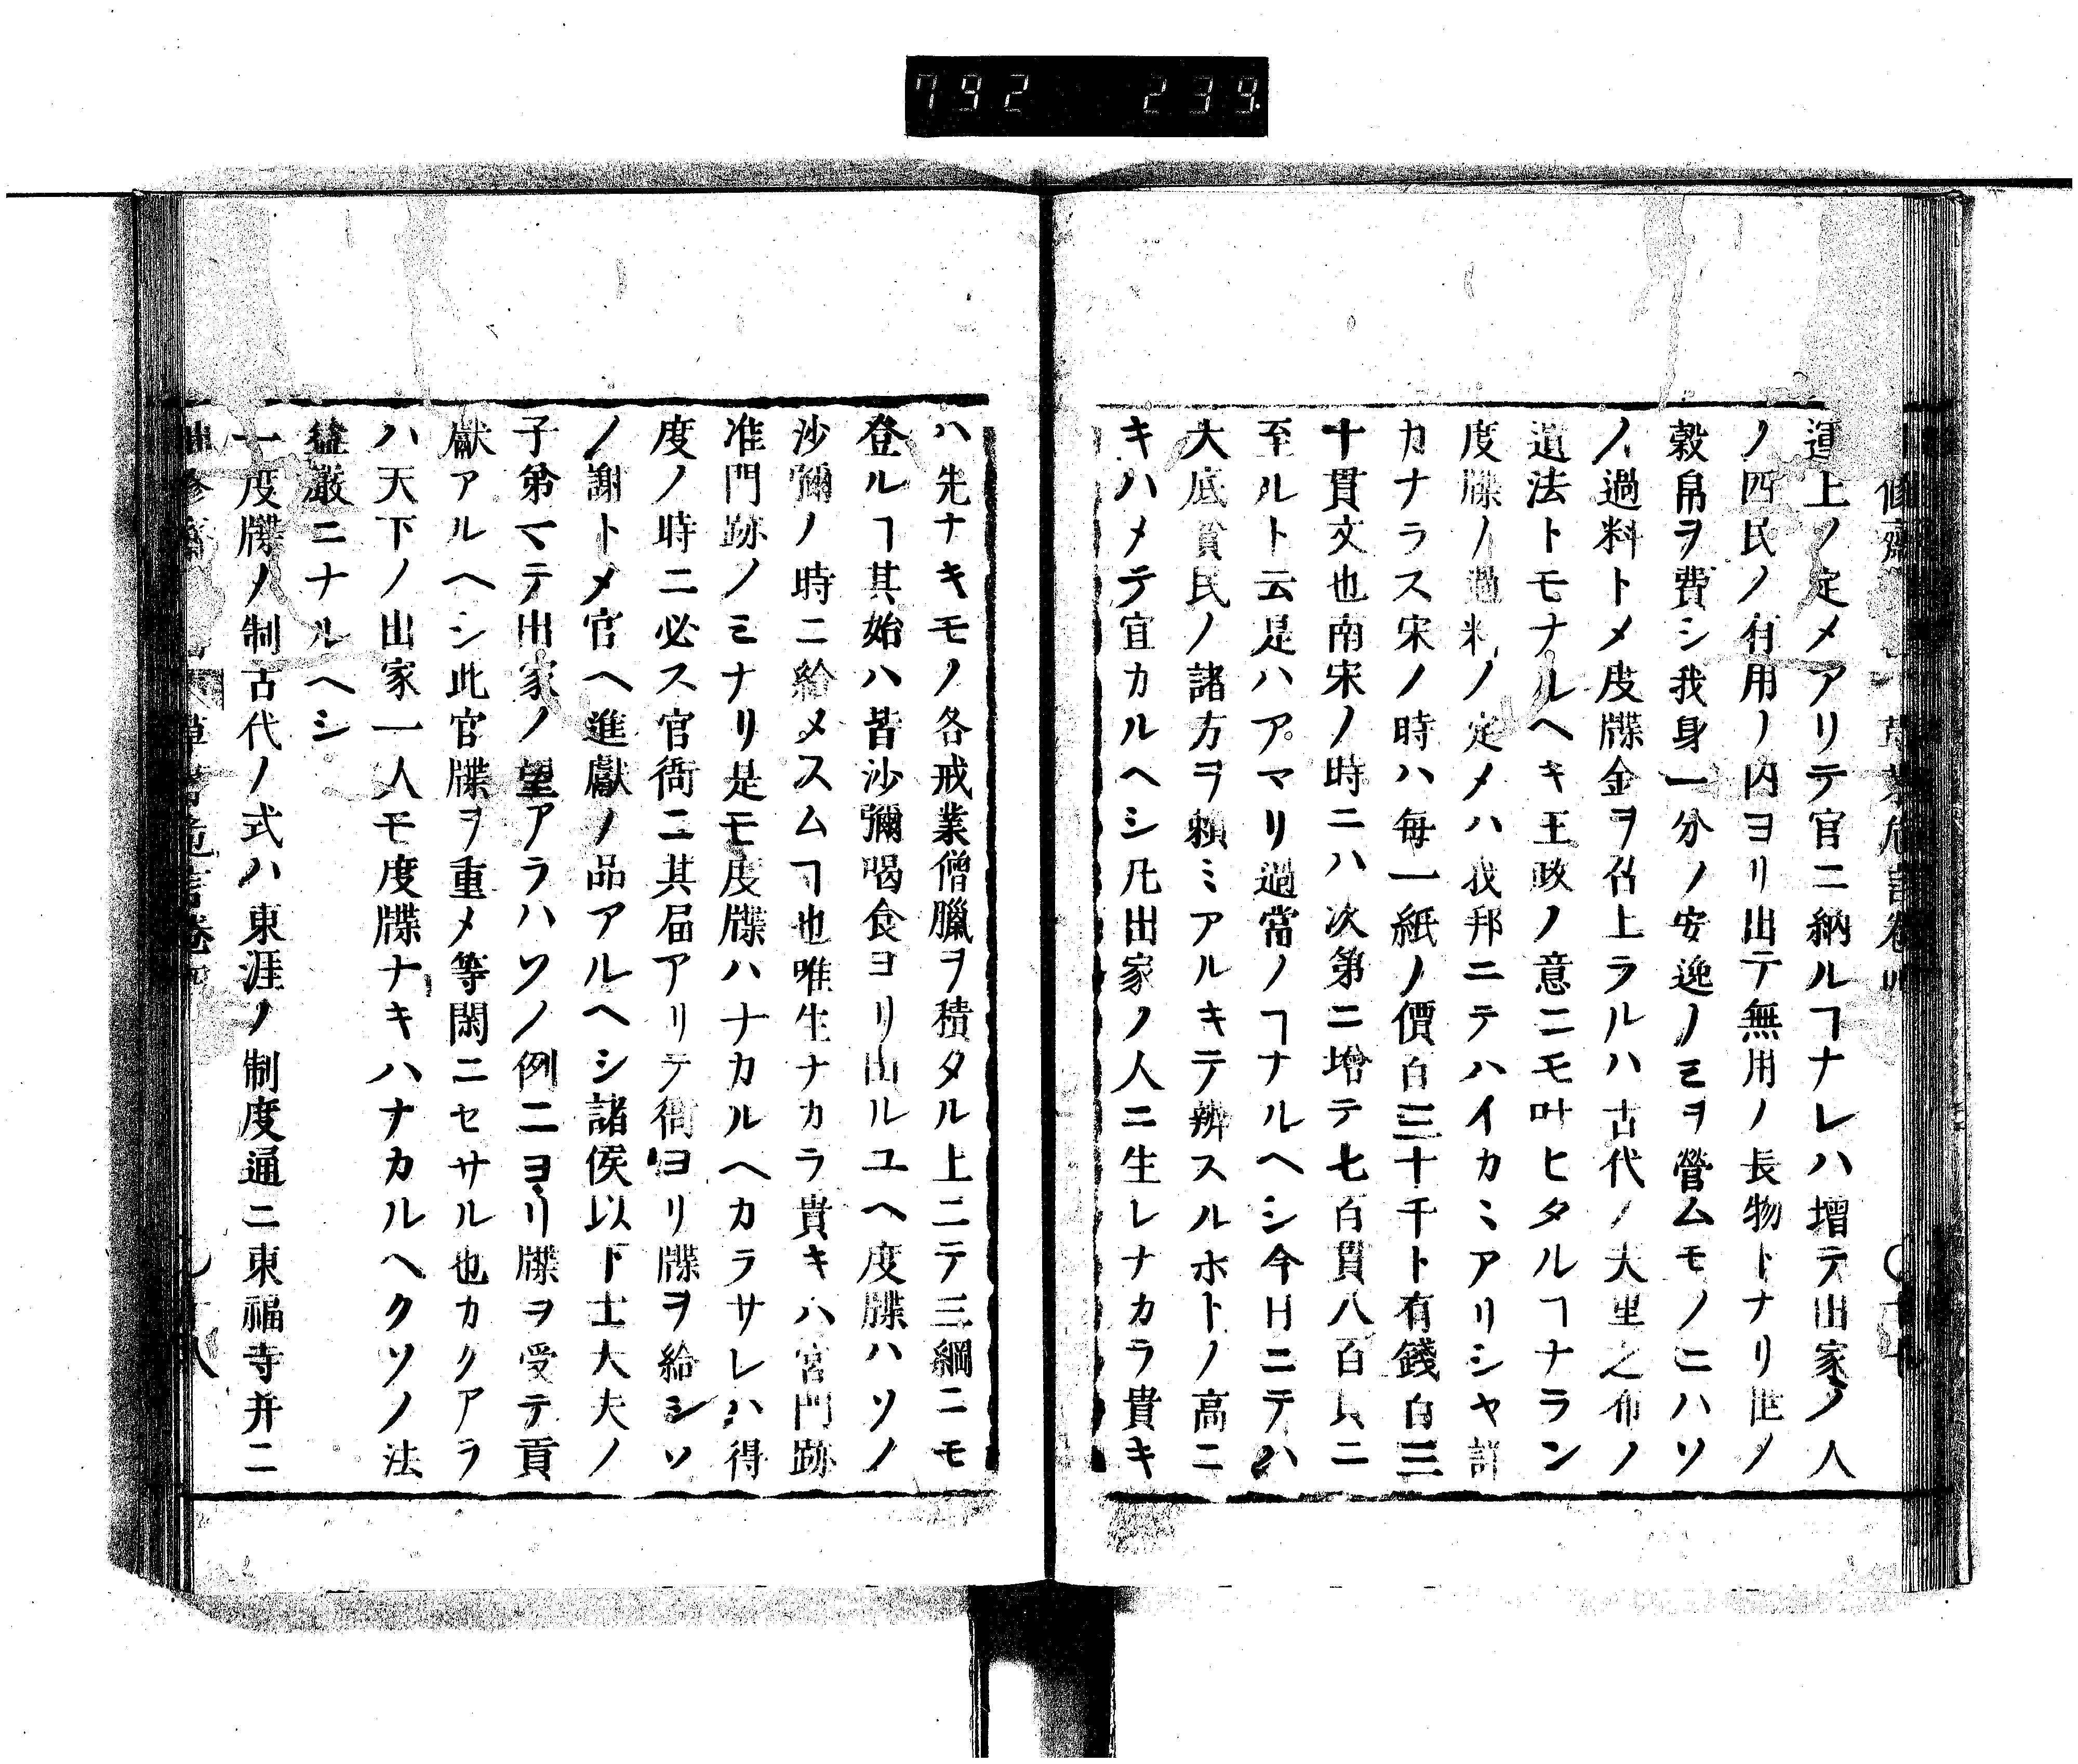 792 239
運上ノ定メアリテ官ニ納ルヿナレハ増テ出家ノ人
ノ四民ノ有用ノ内ヨリ出テ無用ノ長物トナリ世ノ
穀帛ヲ費シ我身一分ノ安逸ノミヲ營ムモノニハソ
ノ過料トメ度牒金ヲ召上ラルハ古代ノ夫里之布ノ
遺法トモナルヘキ王政ノ意ニモ叶ヒタルヿナラン
度牒ノ過料ノ定メハ我邦ニテハイカミアリシヤ詳
カナラス宋ノ時ハ毎一紙ノ價百三十千ト有錢百三
十貫文也南宋ノ時ニハ次第ニ増テ七百貫八百貫ニ
至ルト云是ハアマリ過當ノヿナルヘシ今日ニテハ
大底貧民ノ諸方ヲ頼ミアルキテ辨スルホトノ高ニ
キハメテ宜カルヘシ凡出家ノ人ニ生レナカラ貴キ
ハ先ナキモノ各戒業僧臘ヲ積タル上ニテ三綱ニモ
登ルヿ其始ハ皆沙彌喝食ヨリ出ルユヘ度牒ハソノ
沙彌ノ時ニ給メスムヿ也唯生ナカラ貴キハ宮門跡
准門跡ノミナリ是モ度牒ハナカルヘカラサレハ得
度ノ時ニ必ス官衙ニ其届アリテ衙ヨリ牒ヲ給シソ
ノ謝トメ官ヘ進獻ノ品アルヘシ諸侯以下士大夫ノ
子弟マテ出家ノ望アラハソノ例ニヨリ牒ヲ受テ貢
獻アルヘシ此官牒ヲ重メ等閑ニセサル也カクアラ
ハ天下ノ出家一人モ度牒ナキハナカルヘクソノ法
益嚴ニナルヘシ
一度牒ノ制古代ノ式ハ東涯ノ制度通ニ東福寺并ニ